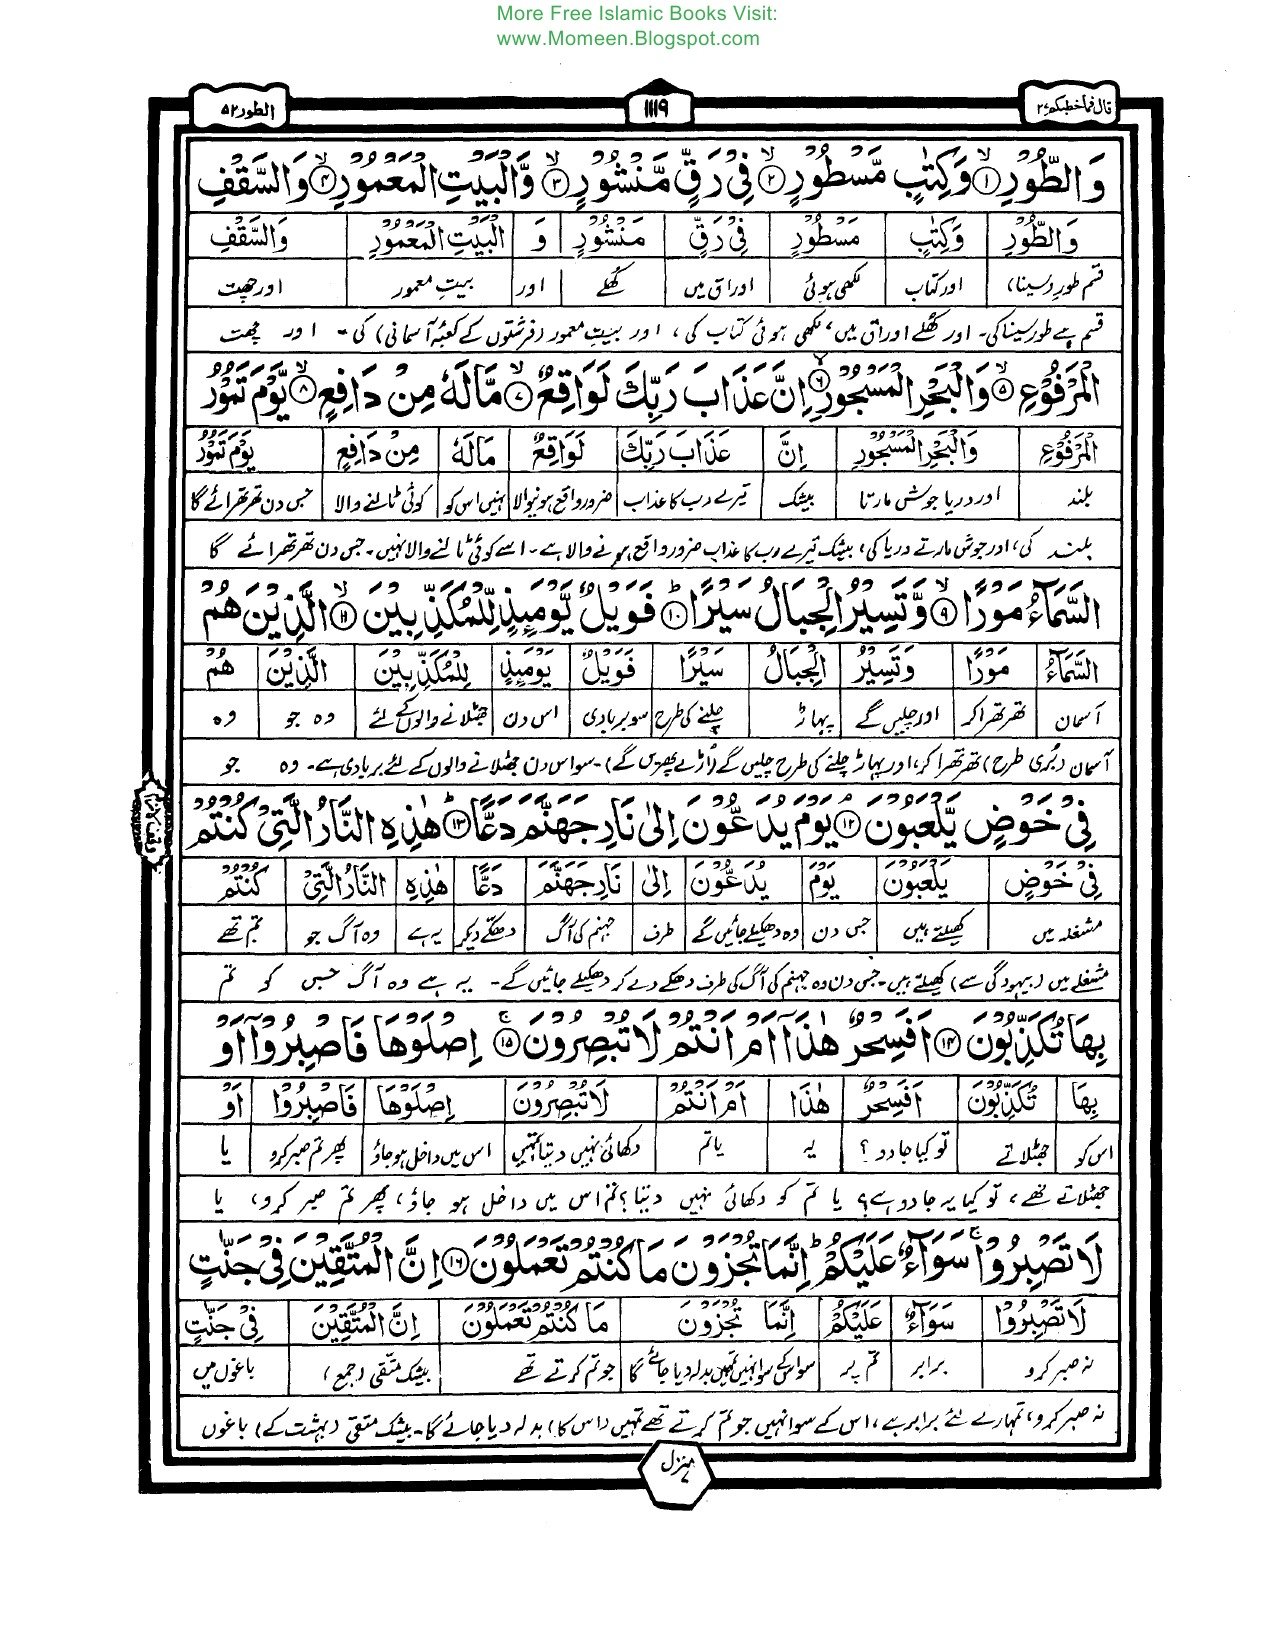 More Free Islamic Books Visit:
www.Momeen.Blogspot.com
قال فما خطبكم ۲۷
۱۱۱۹
الطور ۵۲
وَالطُّوْرِ ۙ۱ وَكِتٰبٍ مَّسْطُوْرٍ ۙ۲ فِيْ رَقٍّ مَّنْشُوْرٍ ۙ۳ وَّالْبَيْتِ الْمَعْمُوْرِ ۙ۴ وَالسَّقْفِ
وَالطُّوْرِ وَكِتٰبٍ مَسْطُوْرٍ فِيْ رَقٍّ مَنْشُوْرٍ وَ الْبَيْتِ الْمَعْمُوْرِ وَالسَّقْفِ
قسم طور (سینا) اور کتاب لکھی ہوئی اوراق میں کھلے اور بیت معمور اور چھت
قسم ہے طور سینا کی۔ اور کھلے اوراق میں، لکھی ہوئی کتاب کی، اور بیتِ معمور (فرشتوں کے کعبہ آسمانی) کی۔ اور چھت
الْمَرْفُوْعِ ۙ۵ وَالْبَحْرِ الْمَسْجُوْرِ ۙ۶ اِنَّ عَذَابَ رَبِّكَ لَوَاقِعٌ ۙ۷ مَّا لَهٗ مِنْ دَافِعٍ ۙ۸ يَّوْمَ تَمُوْرُ
الْمَرْفُوْعِ وَالْبَحْرِ الْمَسْجُوْرِ اِنَّ عَذَابَ رَبِّكَ لَوَاقِعٌ مَا لَهٗ مِنْ دَافِعٍ يَوْمَ تَمُوْرُ
بلند اور دریا جوش مارتا بیشک تیرے رب کا عذاب ضرور واقع ہونیوالا نہیں اس کو کوئی ٹالنے والا جس دن تھرتھرائے گا
بلند کی، اور جوش مارتے دریا کی، بیشک تیرے رب کا عذاب ضرور واقع ہونے والا ہے۔ اسے کوئی ٹالنے والا نہیں۔ جس دن تھرتھرائے گا
السَّمَآءُ مَوْرًا ۙ۹ وَّتَسِيْرُ الْجِبَالُ سَيْرًا ؕ۱۰ فَوَيْلٌ يَّوْمَئِذٍ لِّلْمُكَذِّبِيْنَ ۙ۱۱ الَّذِيْنَ هُمْ
السَّمَآءُ مَوْرًا وَتَسِيْرُ الْجِبَالُ سَيْرًا فَوَيْلٌ يَوْمَئِذٍ لِلْمُكَذِّبِيْنَ الَّذِيْنَ هُمْ
آسمان تھرتھرا کر اور چلیں گے پہاڑ چلنے کی طرح سو بربادی اس دن جھٹلانے والوں کے لئے وہ جو وہ
آسمان (بُری طرح) تھرتھرا کر، اور پہاڑ چلنے کی طرح چلیں گے (اُڑے پھریں گے)۔ سو اس دن جھٹلانے والوں کے لئے بربادی ہے۔ وہ جو
فِيْ خَوْضٍ يَّلْعَبُوْنَ ۱۲ يَوْمَ يُدَعُّوْنَ اِلٰى نَارِ جَهَنَّمَ دَعًّا ؕ۱۳ هٰذِهِ النَّارُ الَّتِيْ كُنْتُمْ
فِيْ خَوْضٍ يَلْعَبُوْنَ يَوْمَ يُدَعُّوْنَ اِلٰى نَارِ جَهَنَّمَ دَعًّا هٰذِهِ النَّارُ الَّتِيْ كُنْتُمْ
مشغلہ میں کھیلتے ہیں جس دن وہ دھکیلے جائیں گے طرف جہنم کی آگ دھکے دیکر یہ ہے وہ آگ جو تم تھے
مشغلے میں (بیہودگی سے) کھیلتے ہیں۔ جس دن وہ جہنم کی آگ کی طرف دھکے دے کر دھکیلے جائیں گے۔ یہ ہے وہ آگ جس کو تم
بِهَا تُكَذِّبُوْنَ ۱۴ اَفَسِحْرٌ هٰذَا اَمْ اَنْتُمْ لَا تُبْصِرُوْنَ ۚ۱۵ اِصْلَوْهَا فَاصْبِرُوْا اَوْ
بِهَا تُكَذِّبُوْنَ اَفَسِحْرٌ هٰذَا اَمْ اَنْتُمْ لَا تُبْصِرُوْنَ اِصْلَوْهَا فَاصْبِرُوْا اَوْ
اس کو جھٹلاتے تو کیا جادو؟ یہ یا تم دکھائی نہیں دیتا تمہیں اس میں داخل ہو جاؤ پھر تم صبر کرو یا
جھٹلاتے تھے، تو کیا یہ جادو ہے؟ یا تم کو دکھائی نہیں دیتا؟ تم اس میں داخل ہو جاؤ، پھر تم صبر کرو، یا
لَا تَصْبِرُوْا ۚ سَوَآءٌ عَلَيْكُمْ ؕ اِنَّمَا تُجْزَوْنَ مَا كُنْتُمْ تَعْمَلُوْنَ ۱۶ اِنَّ الْمُتَّقِيْنَ فِيْ جَنّٰتٍ
لَا تَصْبِرُوْا سَوَآءٌ عَلَيْكُمْ اِنَّمَا تُجْزَوْنَ مَا كُنْتُمْ تَعْمَلُوْنَ اِنَّ الْمُتَّقِيْنَ فِيْ جَنّٰتٍ
نہ صبر کرو برابر تم پر سو اس کے سوا نہیں تمہیں بدلہ دیا جائے گا جو تم کرتے تھے بیشک متقی (جمع) باغوں میں
نہ صبر کرو، تمہارے لئے برابر ہے، اس کے سوا نہیں جو تم کرتے تھے تمہیں (اس کا) بدلہ دیا جائے گا۔ بیشک متقی (بہشت کے) باغوں
منزل ۷